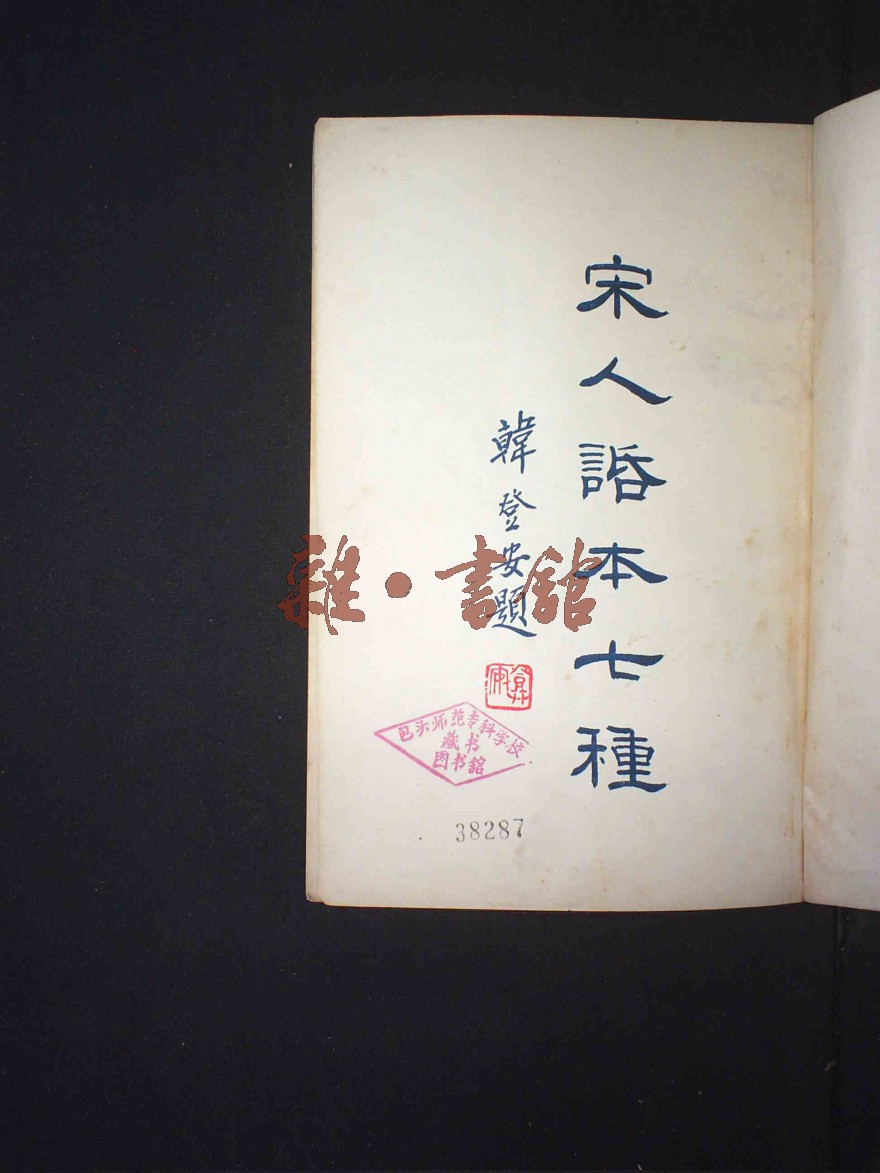 宋人話本七種
韓登安題
雜·書館
包头师范专科学校
藏书
图书館
38287